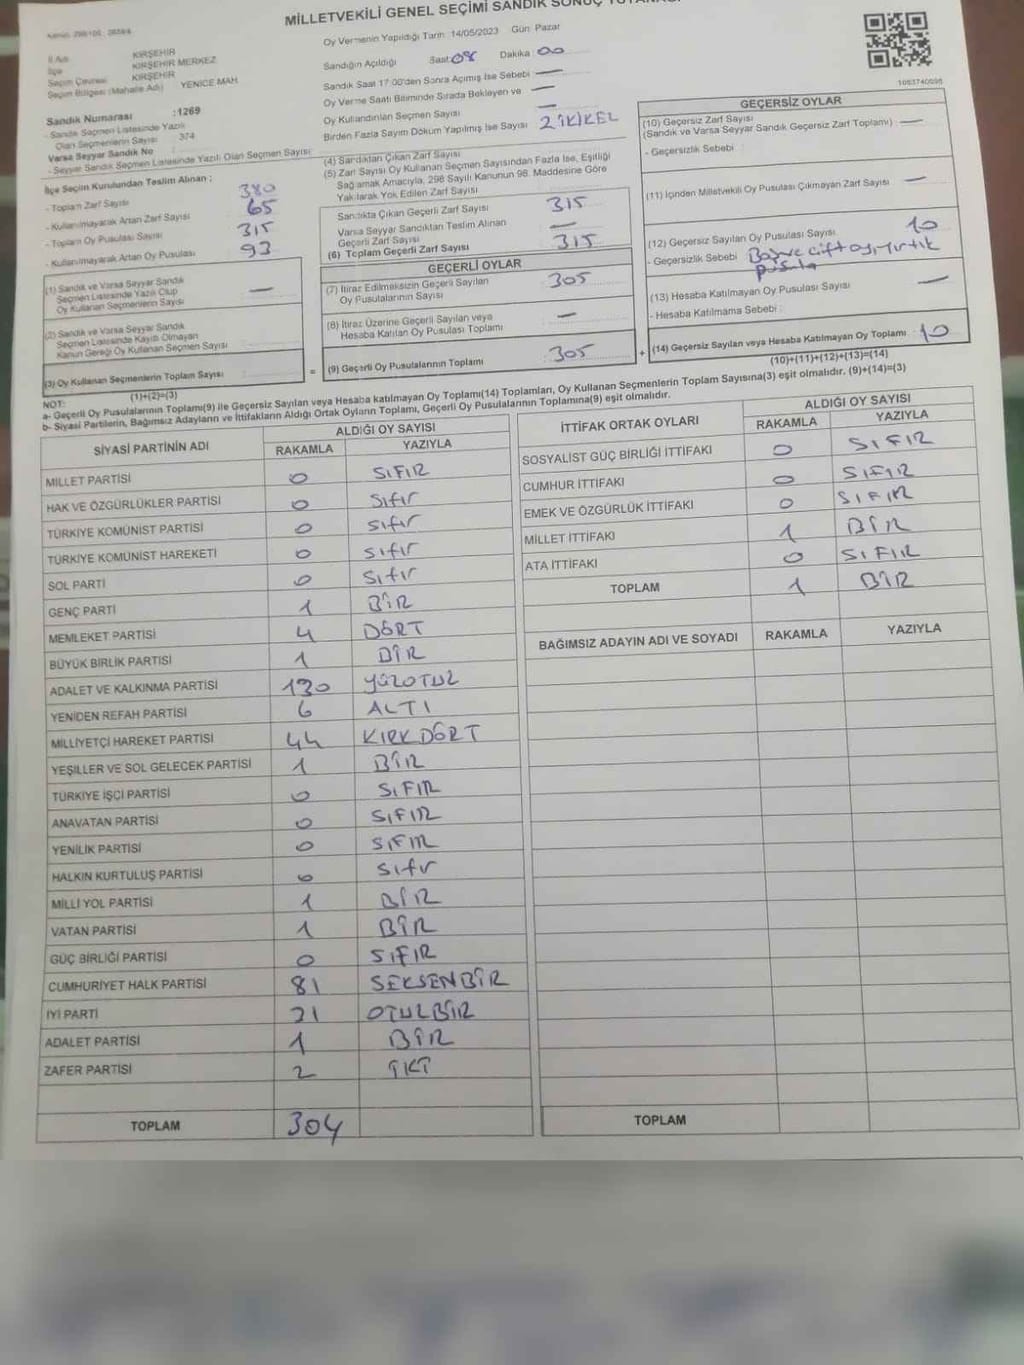 MİLLETVEKİLİ GENEL SEÇİMİ SANDIK SONUÇ
Oy Vermenin Yapıldığı Tarih: 14/05/2023 Gün: Pazar
İl Adı KIRŞEHİR
İlçe KIRŞEHİR MERKEZ
Seçim Çevresi KIRŞEHİR
Seçim Bölgesi (Mahalle Adı) YENİCE MAH.
Sandığın Açıldığı Saat: 08 Dakika: 00
Sandık Saat 17:00'den Sonra Açılmış İse Sebebi —
Oy Verme Saati Bitiminde Sırada Bekleyen ve
Oy Kullandırılan Seçmen Sayısı —
Birden Fazla Sayım Döküm Yapılmış İse Sayısı 2 İKİKEL
1083740095
Sandık Numarası :1269
- Sandık Seçmen Listesinde Yazılı
Olan Seçmenlerin Sayısı : 374
Varsa Seyyar Sandık No
- Seyyar Sandık Seçmen Listesinde Yazılı Olan Seçmen Sayısı
İlçe Seçim Kurulundan Teslim Alınan :
- Toplam Zarf Sayısı 380
- Kullanılmayarak Artan Zarf Sayısı 65
- Toplam Oy Pusulası Sayısı 315
- Kullanılmayarak Artan Oy Pusulası 93
(1) Sandık ve Varsa Seyyar Sandık
Seçmen Listesinde Yazılı Olup
Oy Kullanan Seçmenlerin Sayısı —
(2) Sandık ve Varsa Seyyar Sandık
Seçmen Listesinde Kayıtlı Olmayan
Kanun Gereği Oy Kullanan Seçmen Sayısı
(3) Oy Kullanan Seçmenlerin Toplam Sayısı
(1)+(2)=(3)
(4) Sandıktan Çıkan Zarf Sayısı
(5) Zarf Sayısı Oy Kullanan Seçmen Sayısından Fazla İse, Eşitliği
Sağlamak Amacıyla, 298 Sayılı Kanunun 98. Maddesine Göre
Yakılarak Yok Edilen Zarf Sayısı
Sandıkta Çıkan Geçerli Zarf Sayısı 315
Varsa Seyyar Sandıktan Teslim Alınan
Geçerli Zarf Sayısı —
(6) Toplam Geçerli Zarf Sayısı 315
GEÇERLİ OYLAR
(7) İtiraz Edilmeksizin Geçerli Sayılan
Oy Pusulalarının Sayısı 305
(8) İtiraz Üzerine Geçerli Sayılan veya
Hesaba Katılan Oy Pusulası Toplamı —
= (9) Geçerli Oy Pusulalarının Toplamı 305
GEÇERSİZ OYLAR
(10) Geçersiz Zarf Sayısı
(Sandık ve Varsa Seyyar Sandık Geçersiz Zarf Toplamı) —
- Geçersizlik Sebebi :
(11) İçinden Milletvekili Oy Pusulası Çıkmayan Zarf Sayısı —
(12) Geçersiz Sayılan Oy Pusulası Sayısı 10
- Geçersizlik Sebebi Boş ve çift oy, yırtık
pusula
(13) Hesaba Katılmayan Oy Pusulası Sayısı —
- Hesaba Katılmama Sebebi :
+ (14) Geçersiz Sayılan veya Hesaba Katılmayan Oy Toplamı 10
(10)+(11)+(12)+(13)=(14)
NOT:
a- Geçerli Oy Pusulalarının Toplamı(9) ile Geçersiz Sayılan veya Hesaba katılmayan Oy Toplamı(14) Toplamları, Oy Kullanan Seçmenlerin Toplam Sayısına(3) eşit olmalıdır. (9)+(14)=(3)
b- Siyasi Partilerin, Bağımsız Adayların ve İttifakların Aldığı Ortak Oyların Toplamı, Geçerli Oy Pusulalarının Toplamına(9) eşit olmalıdır.
SİYASİ PARTİNİN ADI ALDIĞI OY SAYISI
RAKAMLA YAZIYLA
MİLLET PARTİSİ 0 SIFIR
HAK VE ÖZGÜRLÜKLER PARTİSİ 0 Sıfır
TÜRKİYE KOMÜNİST PARTİSİ 0 Sıfır
TÜRKİYE KOMÜNİST HAREKETİ 0 Sıfır
SOL PARTİ 0 Sıfır
GENÇ PARTİ 1 BİR
MEMLEKET PARTİSİ 4 DÖRT
BÜYÜK BİRLİK PARTİSİ 1 BİR
ADALET VE KALKINMA PARTİSİ 130 YÜZOTUZ
YENİDEN REFAH PARTİSİ 6 ALTI
MİLLİYETÇİ HAREKET PARTİSİ 44 KIRKDÖRT
YEŞİLLER VE SOL GELECEK PARTİSİ 1 BİR
TÜRKİYE İŞÇİ PARTİSİ 0 SIFIR
ANAVATAN PARTİSİ 0 SIFIR
YENİLİK PARTİSİ 0 SIFIR
HALKIN KURTULUŞ PARTİSİ 0 Sıfır
MİLLİ YOL PARTİSİ 1 BİR
VATAN PARTİSİ 1 BİR
GÜÇ BİRLİĞİ PARTİSİ 0 SIFIR
CUMHURİYET HALK PARTİSİ 81 SEKSENBİR
İYİ PARTİ 31 OTUZBİR
ADALET PARTİSİ 1 BİR
ZAFER PARTİSİ 2 İKİ
TOPLAM 304
İTTİFAK ORTAK OYLARI ALDIĞI OY SAYISI
RAKAMLA YAZIYLA
SOSYALİST GÜÇ BİRLİĞİ İTTİFAKI 0 SIFIR
CUMHUR İTTİFAKI 0 SIFIR
EMEK VE ÖZGÜRLÜK İTTİFAKI 0 SIFIR
MİLLET İTTİFAKI 1 BİR
ATA İTTİFAKI 0 SIFIR
TOPLAM 1 BİR
BAĞIMSIZ ADAYIN ADI VE SOYADI RAKAMLA YAZIYLA
TOPLAM